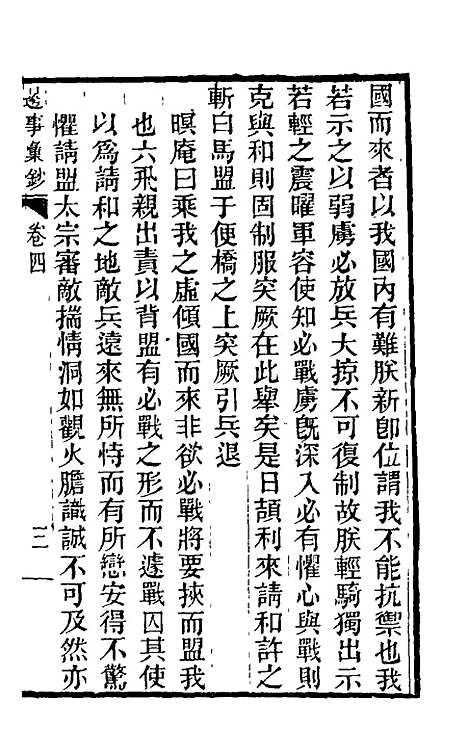 國而來者以我國內有難朕新卽位謂我不能抗禦也我
若示之以弱虜必放兵大掠不可復制故朕輕騎獨出示
若輕之震曜軍容使知必戰虜旣深入必有懼心與戰則
克與和則固制服突厥在此舉矣是日頡利來請和許之
斬白馬盟于便橋之上突厥引兵退
暝庵曰乘我之虛傾國而來非欲必戰將要挾而盟我
也六飛親出責以背盟有必戰之形而不遽戰囚其使
以爲請和之地敵兵遠來無所恃而有所戀安得不驚
懼請盟太宗審敵揣情洞如觀火膽識誠不可及然亦
逸事彙鈔 卷四 三